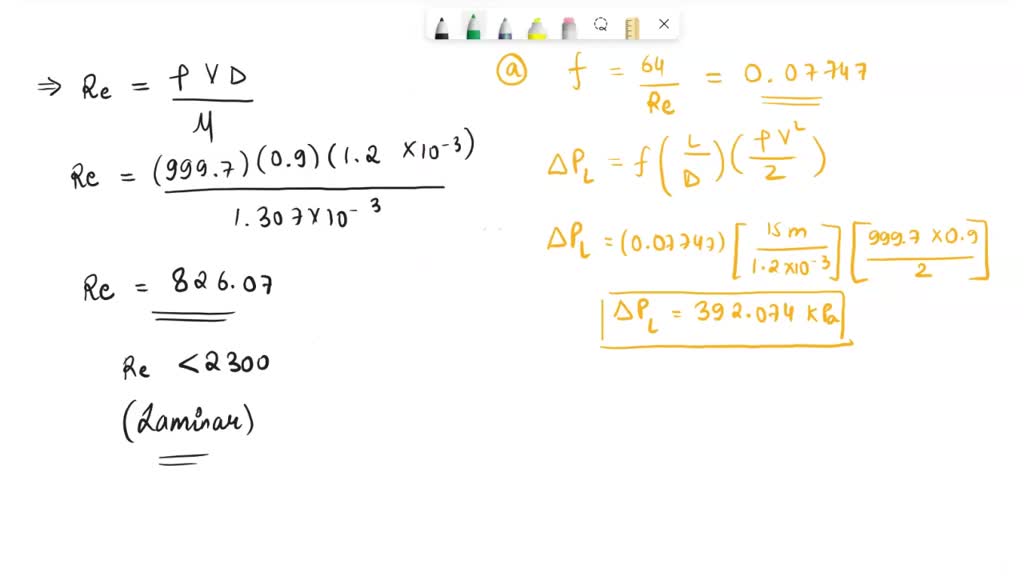 ⇒ Re = ρVD / μ
Re = (999.7)(0.9)(1.2 × 10⁻³) / 1.307×10⁻³
Re = 826.07
Re < 2300
(Laminar)
ⓐ f = 64 / Re = 0.07747
ΔP_L = f (L / D) (ρV² / 2)
ΔP_L = (0.07747) [15 m / 1.2×10⁻³] [999.7 × 0.9 / 2]
ΔP_L = 392.074 kPa